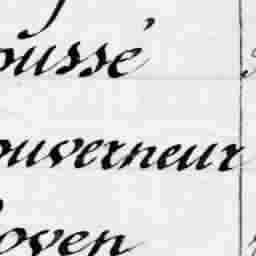 oussé
ouverneur
oyen